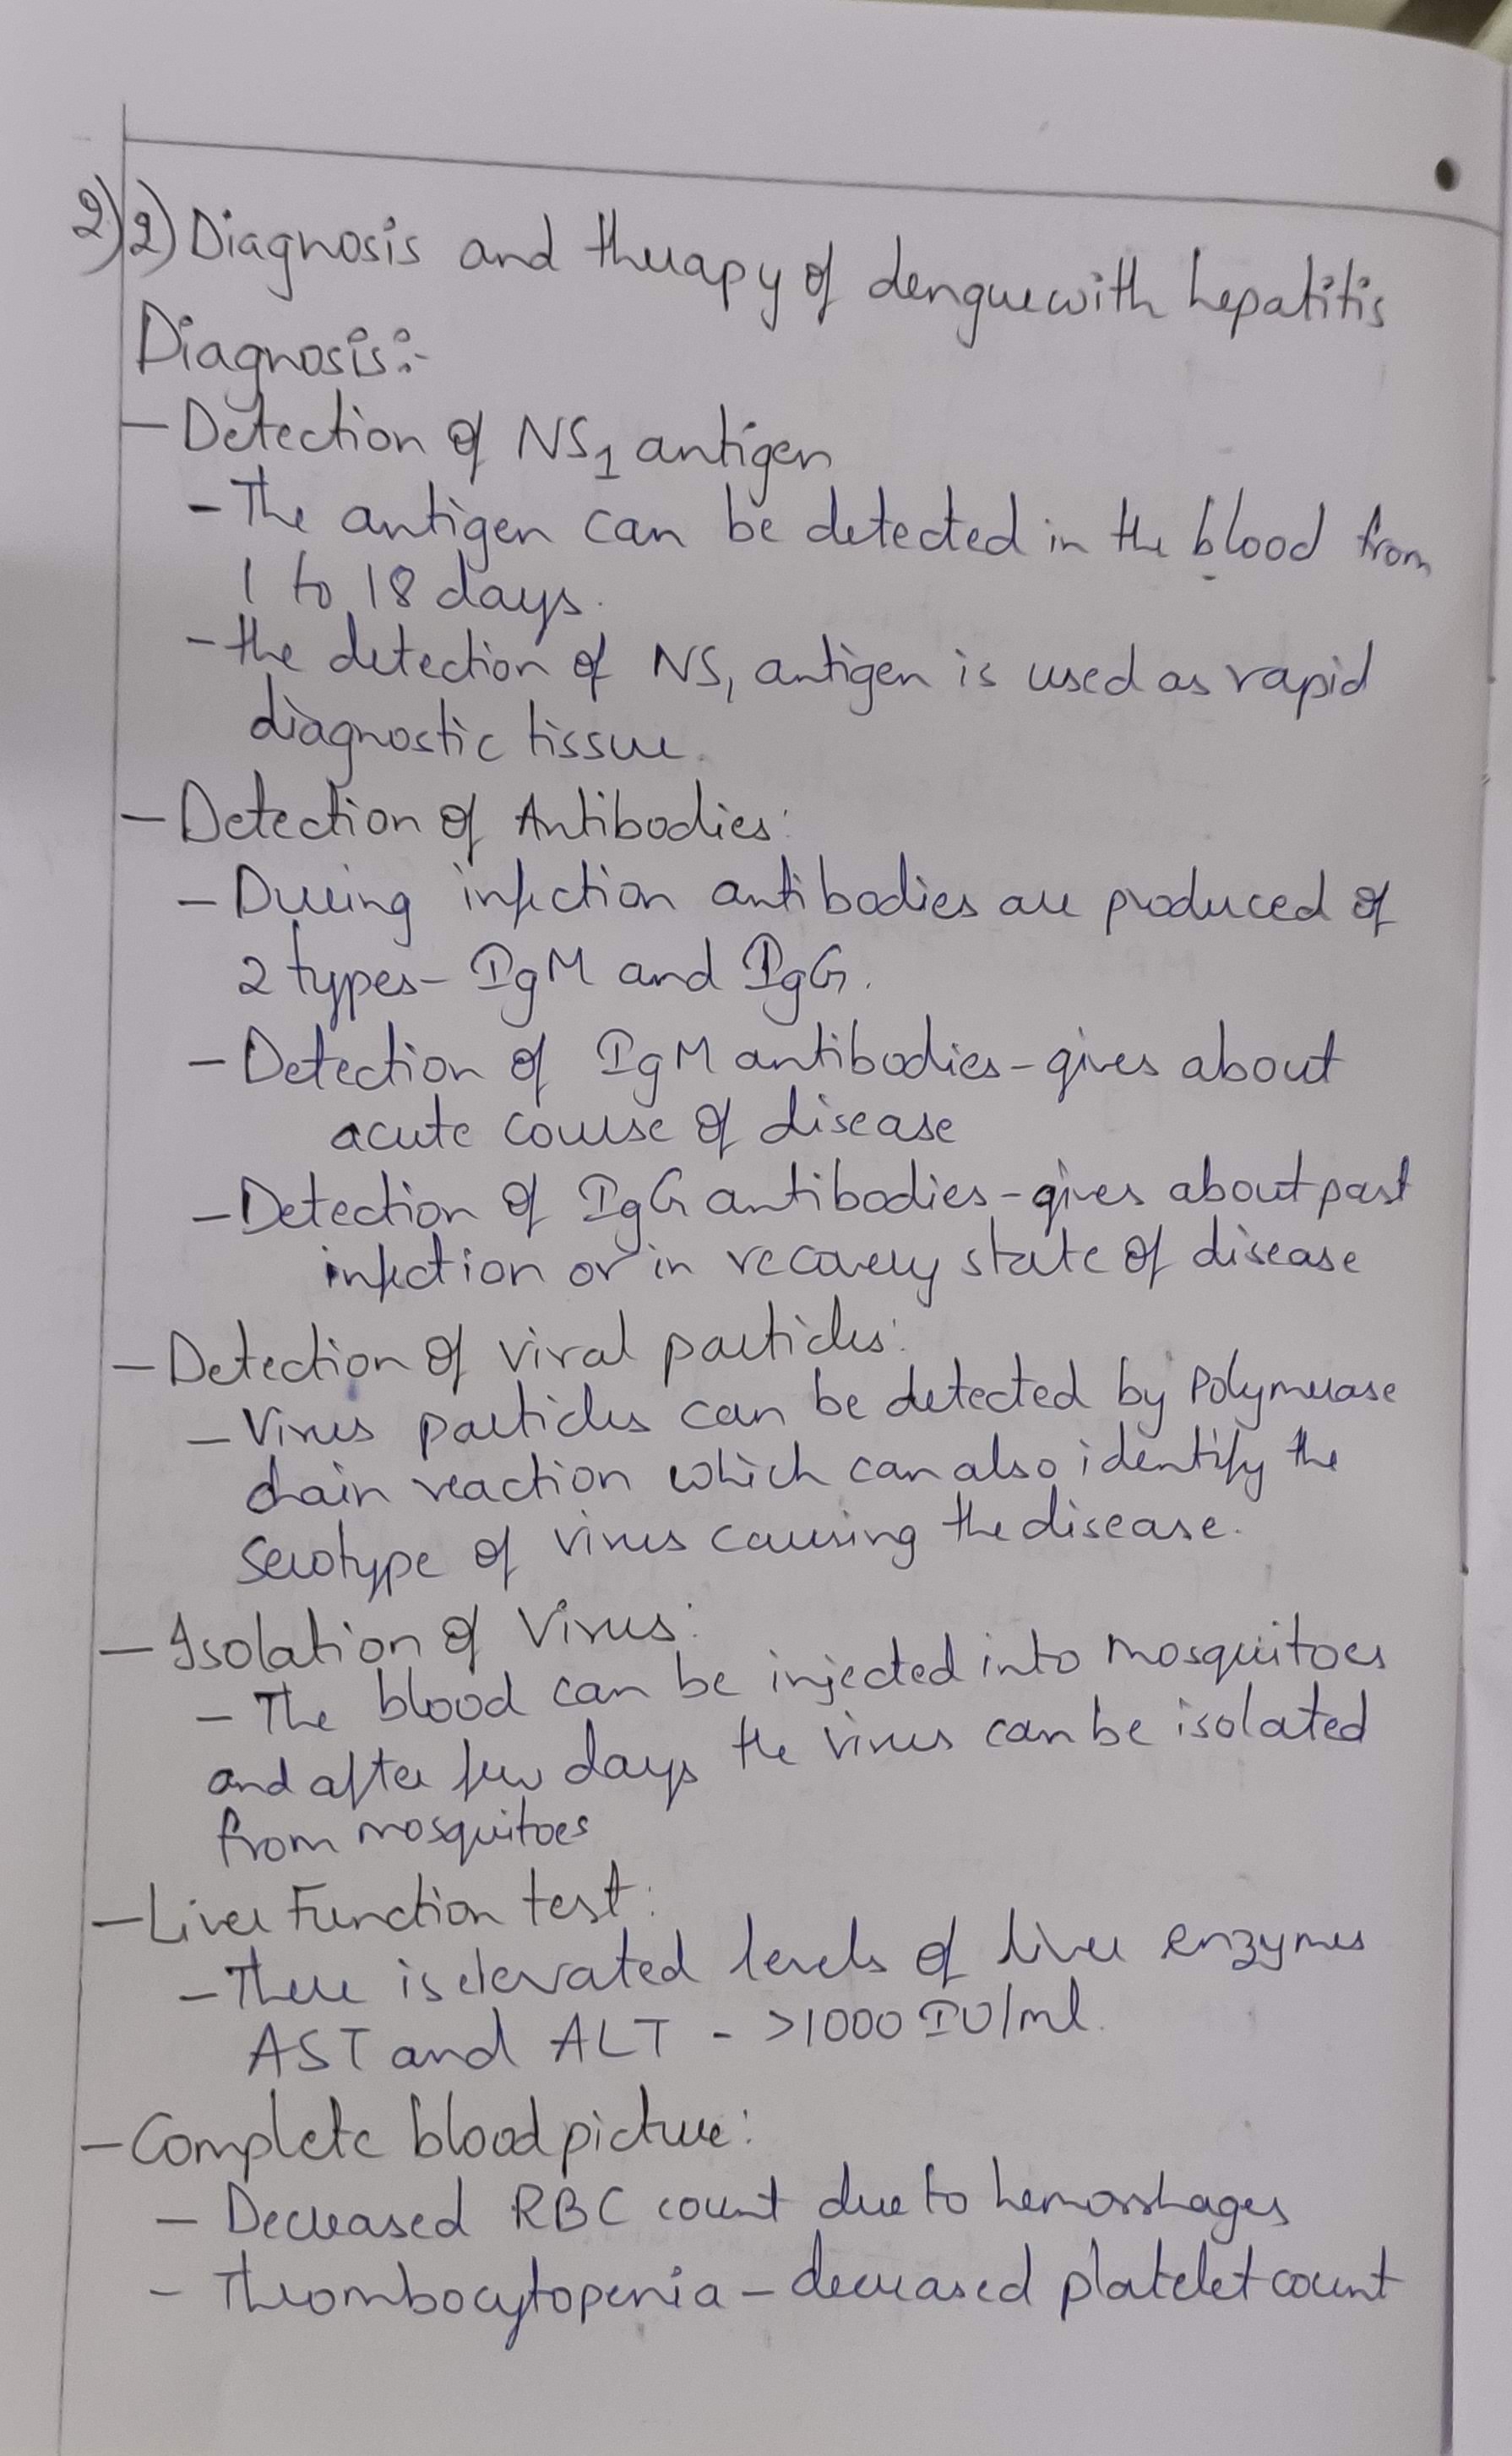 2) 2) Diagnosis and therapy of dengue with hepatitis
Diagnosis:-
- Detection of NS1 antigen
- The antigen can be detected in the blood from
1 to 18 days.
- the detection of NS1 antigen is used as rapid
diagnostic tissue.
- Detection of Antibodies:
- During infection antibodies are produced of
2 types- IgM and IgG.
- Detection of IgM antibodies - gives about
acute course of disease
- Detection of IgG antibodies - gives about past
infection or in recovery state of disease
- Detection of viral particles:
- Virus particles can be detected by Polymerase
chain reaction which can also identify the
serotype of virus causing the disease.
- Isolation of Virus:
- The blood can be injected into mosquitoes
and after few days the virus can be isolated
from mosquitoes
- Liver Function test:
- There is elevated levels of liver enzymes
AST and ALT - >1000 IU/ml.
- Complete blood picture:
- Decreased RBC count due to hemorrhages
- Thrombocytopenia - decreased platelet count